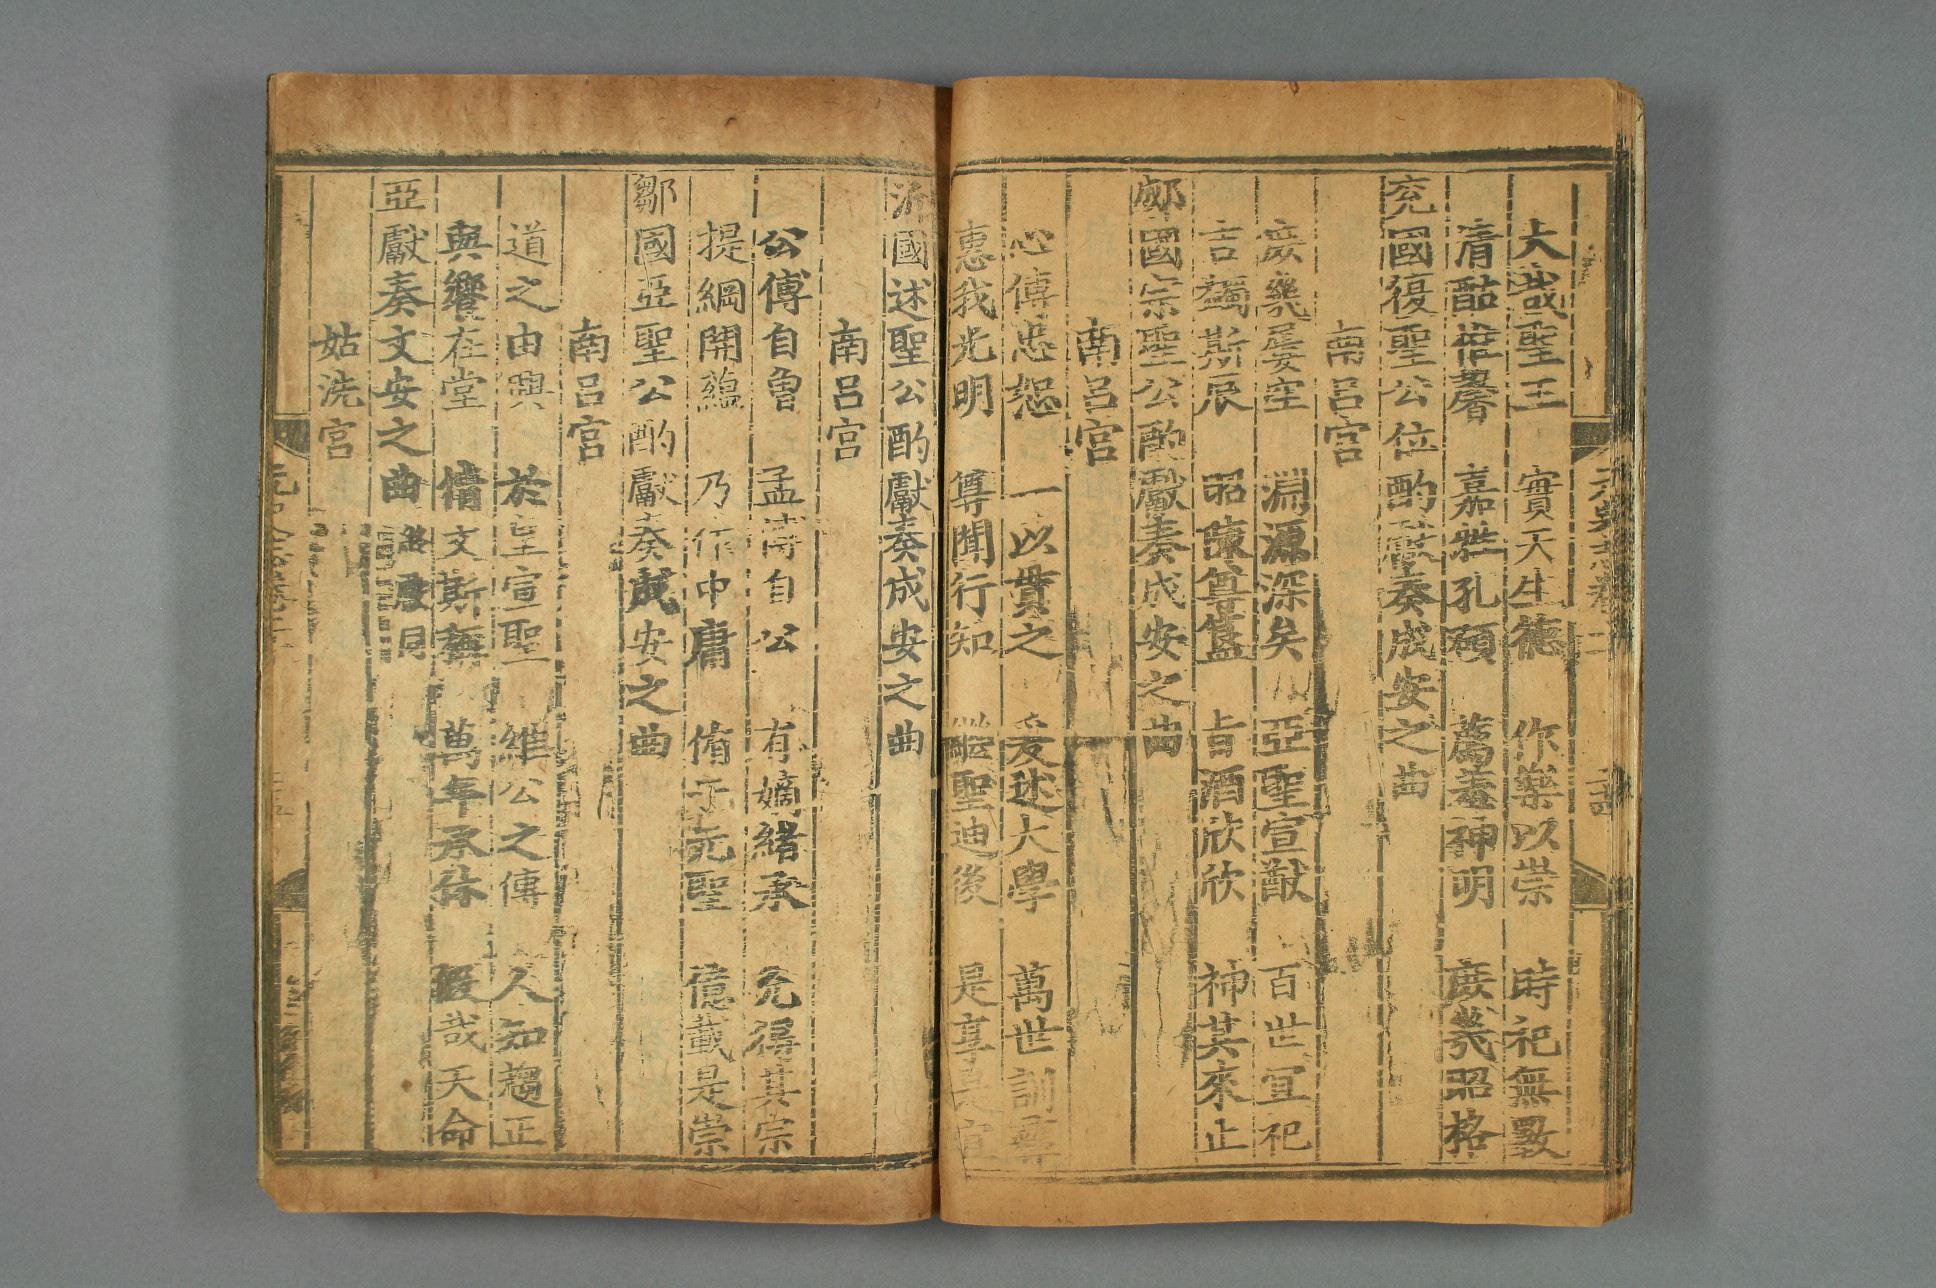 大哉聖王　實天生德　作樂以崇　時祀無斁
清酤惟馨　嘉牲孔碩　薦羞神明　庶幾昭格
兗國復聖公位酌獻奏成安之曲
南呂宮
庶幾屢空　淵源深矣　亞聖宣猷　百世宜祀
吉蠲斯辰　昭陳尊簋　旨酒欣欣　神其來止
郕國宗聖公酌獻奏成安之曲
南呂宮
心傳忠恕　一以貫之　爰述大學　萬世訓彝
惠我光明　尊聞行知　繼聖迪後　是享是宜
沂國述聖公酌獻奏成安之曲
南呂宮
公傳自曾　孟傳自公　有嫡緒承　允得其宗
提綱開蘊　乃作中庸　侑于元聖　億載是崇
鄒國亞聖公酌獻奏成安之曲
南呂宮
道之由興　於皇宣聖　維公之傳　人知趨正
與饗在堂　情文斯稱　萬年承休　假哉天命
亞獻奏文安之曲　終獻同
姑洗宮